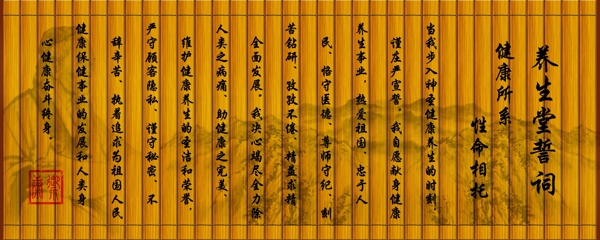 养生堂誓词
健康所系
性命相托
当我步入神圣健康养生的时刻
谨庄严宣誓。我自愿献身健康
养生事业，热爱祖国、忠于人
民、恪守医德、尊师守纪、刻
苦钻研、孜孜不倦、精益求精
全面发展。我决心竭尽全力除
人类之病痛、助健康之完美、
维护健康养生的圣洁和荣誉。
严守顾客隐私、谨守秘密、不
辞辛苦、执着追求为祖国人民
健康保健事业的发展和人类身
心健康奋斗终身。